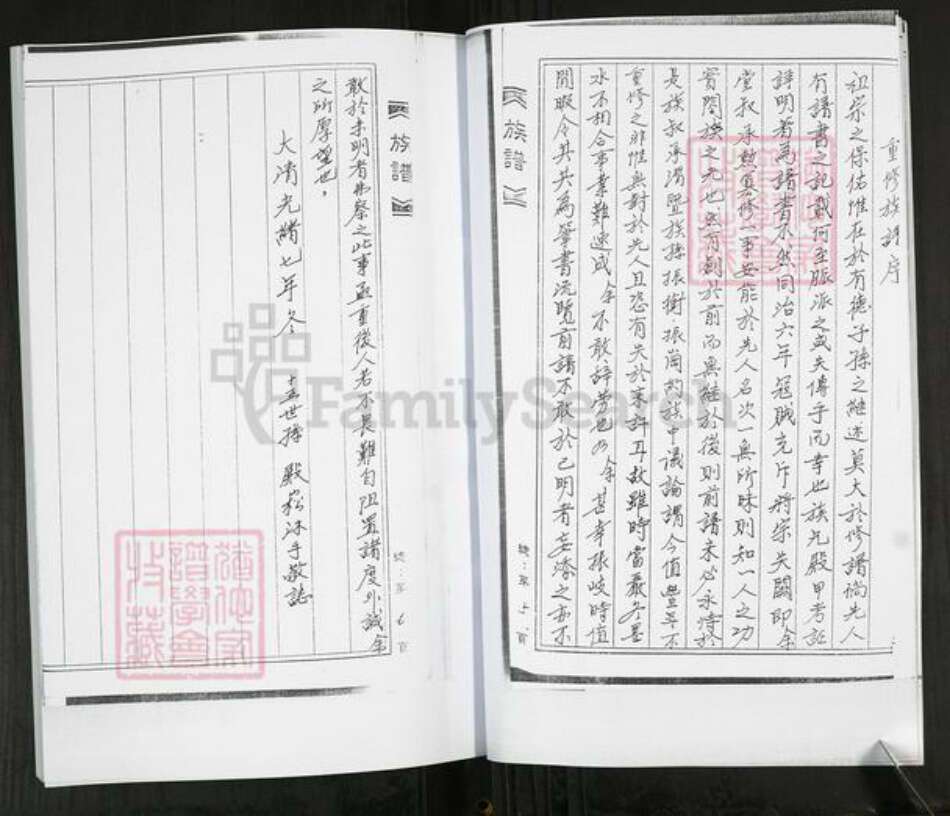 重修族譜序
祖宗之保佑惟在於有德子孫之継述莫大於修譜尚先人
有譜書之記載何至脈派之或失傳乎而幸也族兄殿甲考証
詳明著為譜書不然同治六年冠賊充斥將宗失闕即余
堂叔承熬負修一事安能於先人名次一無所昧則知一人之功
實闔族之光也然有創於前而無継於後則前譜未必永恃於
是族叔承 暨族孫振衡振 約族中議論謂今值豊年不
重修之非惟無對於先人且恐有失於未許耳故雖時當嚴冬墨
水不相合事業難速成余不敢辞劳也乃余甚幸振岐時值
閒暇令其共為筆書流覽前譜不敢於已明者妄添之亦不
族譜
總:第 頁
敢於未明者弗察之此事至重後人若不畏難勿阻置諸度外誠余
之所厚望也,
大清光緒七年冬 十五世孫 殿崧沐手敬誌
族譜
總:第七頁
譜學會
收藏
FamilySearch